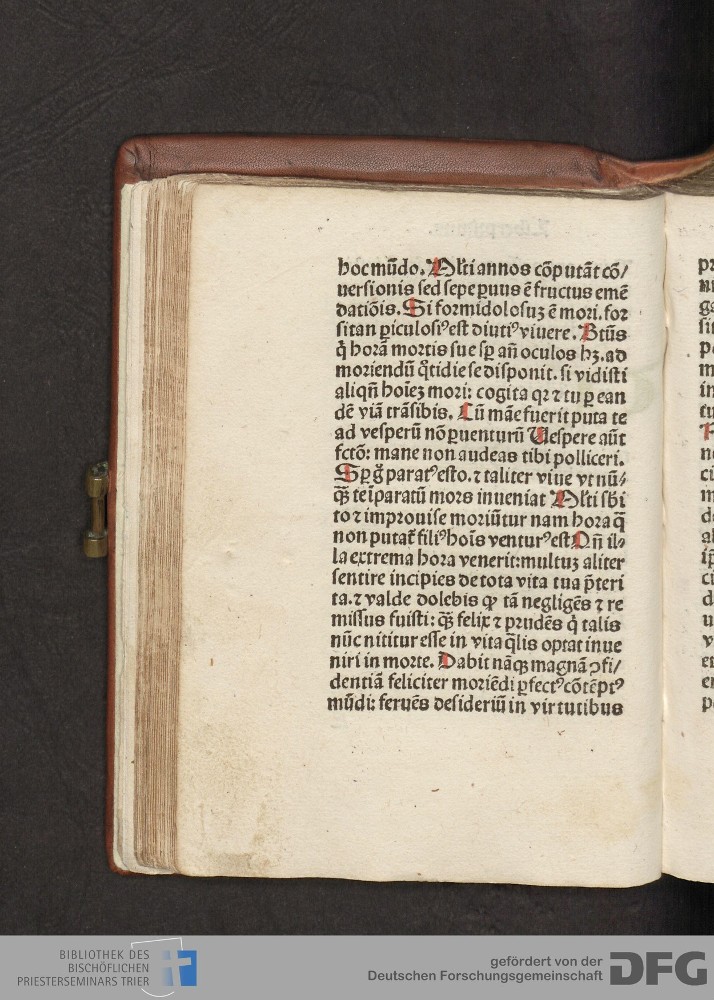 hoc mũdo. Mlti annos cõputãt cõ/
uersionis sed sepe ꝑuus ẽ fructus emẽ
datiõis. Si formidolosuꝫ ẽ mori. for
sitan ꝑiculosiꝰ est diutiꝰ viuere. Btũs
q̇ horã mortis sue sꝑ añ oculos hꝫ. ad
moriendũ q̇tidie se disponit. si vidisti
aliqñ hoiẽꝫ mori: cogita qꝛ ⁊ tu ꝑ ean
dẽ viã trãsibis. Cũ mãe fuerit puta te
ad vesperũ nõ ꝑuenturũ Uespere aũt
fctõ: mane non audeas tibi polliceri.
Sꝑ g̊ paratꝰ esto. ⁊ taliter viue vt nũ⸗
q̃ꝫ te ĩparatũ mors inueniat Mlti sbi
to ⁊ improuise moriũtur nam hora q̃
non putat᷑ filiꝰ hoĩs venturꝰ est Qñ il⸗
la extrema hora venerit: multuꝫ aliter
sentire incipies de tota vita tua p̃teri
ta. ⁊ valde dolebis ꝙ tã negligẽs ⁊ re
missus fuisti: q̃ꝫ felix ⁊ prudẽs q̇ talis
nũc nititur esse in vita q̃lis optat inue
niri in morte. Dabit nãqꝫ magnã ꝯfi/
dentiã feliciter moriẽdi ꝑfectꝰ cõtẽptꝰ
mũdi: feruẽs desideriũ in virtutibus
BIBLIOTHEK DES
BISCHÖFLICHEN
PRIESTERSEMINARS TRIER
gefördert von der
Deutschen Forschungsgemeinschaft
DFG